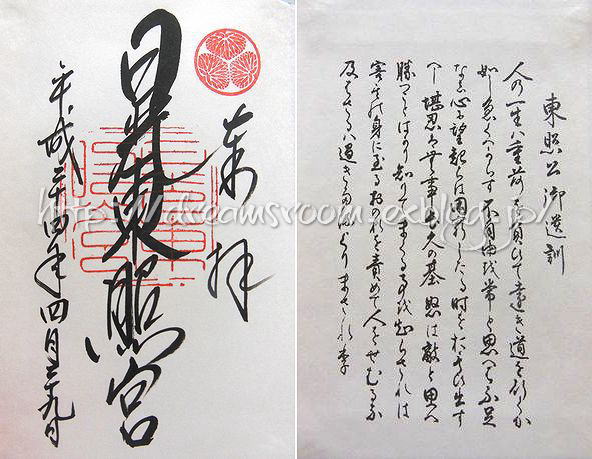 奉拝
日光東照宮
平成二十四年四月二十九日
東照公御遺訓
人の一生ハ重荷を負ひて遠き道を行くか
如し急くへからす不自由を常と思へハ不足
なし心に望起らは困窮したる時を思ひ出す
へし堪忍ハ無事長久の基怒は敵と思へ
勝つことはかり知りてまくる事を知らされは
害其身に至るおのれを責めて人をせむるな
及はさるハ過きたるよりまされり
http://dreamsroom.exblog.jp/